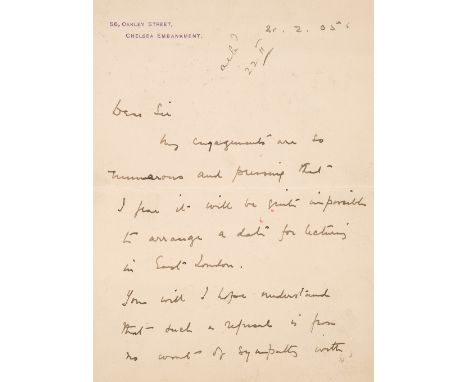 56, OAKLEY STREET,
CHELSEA EMBANKMENT.
21. 2. 05
22 II
Dear Sir
My engagements are so
numerous and pressing that
I fear it will be quite impossible
to arrange a date for lecturing
in East London.
You will I hope understand
that such a refusal is from
no want of sympathy with